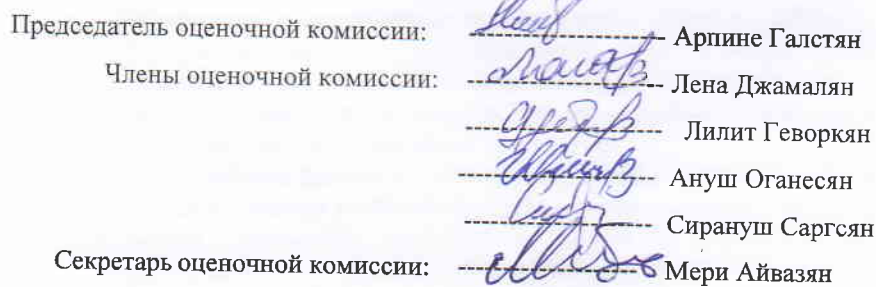 Председатель оценочной комиссии: ---------------- Арпине Галстян
Члены оценочной комиссии: ---------------- Лена Джамалян
---------------- Лилит Геворкян
---------------- Ануш Оганесян
---------------- Сирануш Саргсян
Секретарь оценочной комиссии: ---------------- Мери Айвазян